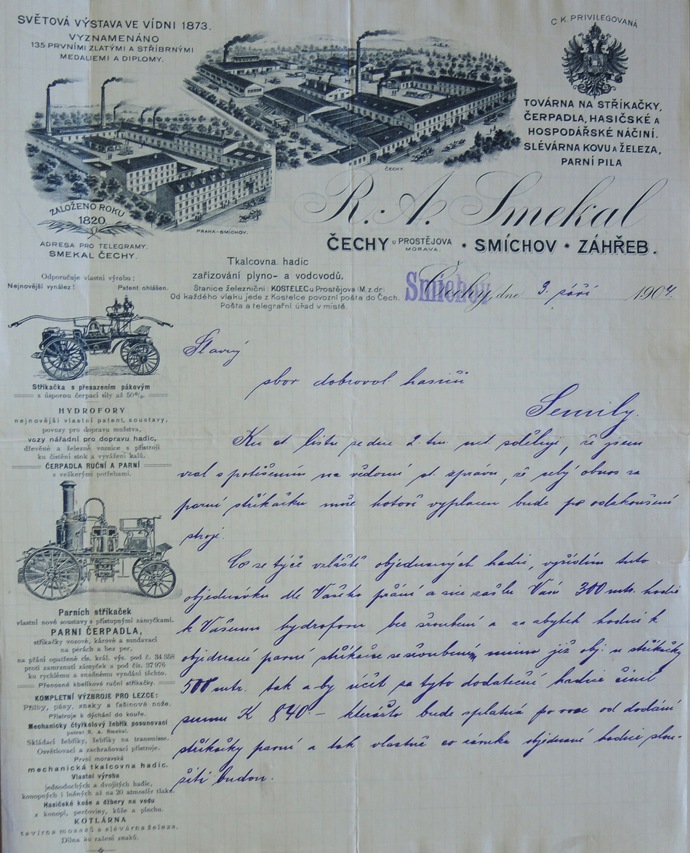 SVĚTOVÁ VÝSTAVA VE VÍDNI 1873.
VYZNAMENÁNO
135 PRVNÍMI ZLATÝMI A STŘÍBRNÝMI
MEDALIEMI A DIPLOMY.
C. K. PRIVILEGOVANÁ
TOVÁRNA NA STŘÍKAČKY,
ČERPADLA, HASIČSKÉ A
HOSPODÁŘSKÉ NÁČINÍ.
SLÉVÁRNA KOVU A ŽELEZA,
PARNÍ PILA
ČECHY.
PRAHA-SMÍCHOV.
ZALOŽENO ROKU
1820.
ADRESA PRO TELEGRAMY.
SMEKAL ČECHY.
R. A. Smekal
ČECHY U PROSTĚJOVA MORAVA • SMÍCHOV • ZÁHŘEB.
Tkalcovna hadic
zařizování plyno- a vodovodů.
Stanice železniční: KOSTELEC u Prostějova (M. z. dr.
Od každého vlaku jede z Kostelce povozní pošta do Čech.
Pošta a telegrafní úřad v místě.
Smíchov
Čechy, dne 3 září 1904.
Odporučuje vlastní výroby:
Nejnovější vynález! Patent ohlášen.
Stříkačka s přesazením pákovým
s úsporou čerpací síly až 50%.
HYDROFORY
nejnovější vlastní patent. soustavy,
povozy pro dopravu mužstva,
vozy nářadní pro dopravu hadic,
dřevěné a železné voznice s přístroji
ku čistění stok a vyvážení kalů.
ČERPADLA RUČNÍ A PARNÍ
s veškerými potřebami.
Parních stříkaček
vlastní nové soustavy s přístupnými zámyčkami.
PARNÍ ČERPADLA,
stříkačky vozové, kárové a sundavací
na pérách a bez per,
na přání opatřené cís. král. výs. pod č. 34 558
proti zamrznutí zámyček a pod čís. 37 976
ku rychlému a snadnému vyndání těchto.
Přenosné kbelíkové ruční stříkačky.
KOMPLETNÍ VÝZBROJE PRO LEZCE:
Přilby, pásy, znaky a fašinové nože.
Přístroje k dýchání do kouře.
Mechanický čtyřkolový žebřík posunovací
patent R. A. Smekal.
Skládací žebříky, žebříky na transmisse.
Osvětlovací a zachraňovací přístroje.
První moravská
mechanická tkalcovna hadic.
Vlastní výroba
jednoduchých a dvojitých hadic,
konopných i lněných až na 20 atmosfér tlaku.
Hasičské koše a džbery na vodu
z konopí, perčoviny, kůže a plechu.
KOTLÁRNA
tavírna mosazů a slévárna železa.
Dílna ku ražení znaků.
Slavný
sbor dobrovol hasičů
Semily.
Ku ct listu ze dne 2 t. m. sděluji, že jsem
vzal s potěšením na vědomí ct zprávu, že celý obnos za
parní stříkačku mně hotově vyplacen bude po odzkoušení
stroje.
Co se týče zvláště objednaných hadic, vyřídím tuto
objednávku dle Vašeho přání a sice zašlu Vám 300 mtr. hadic
k Vašemu hydroforu bez šroubení a
objednané parní stříkačce již obj. stříkačky
500 mtr. tak aby účet za tyto dodatečné hadice činil
sumu K 840- kterážto bude splatná po roce od dodání
stříkačky parní a tak vlastně co záruka objednané hadice slou-
žiti budou.